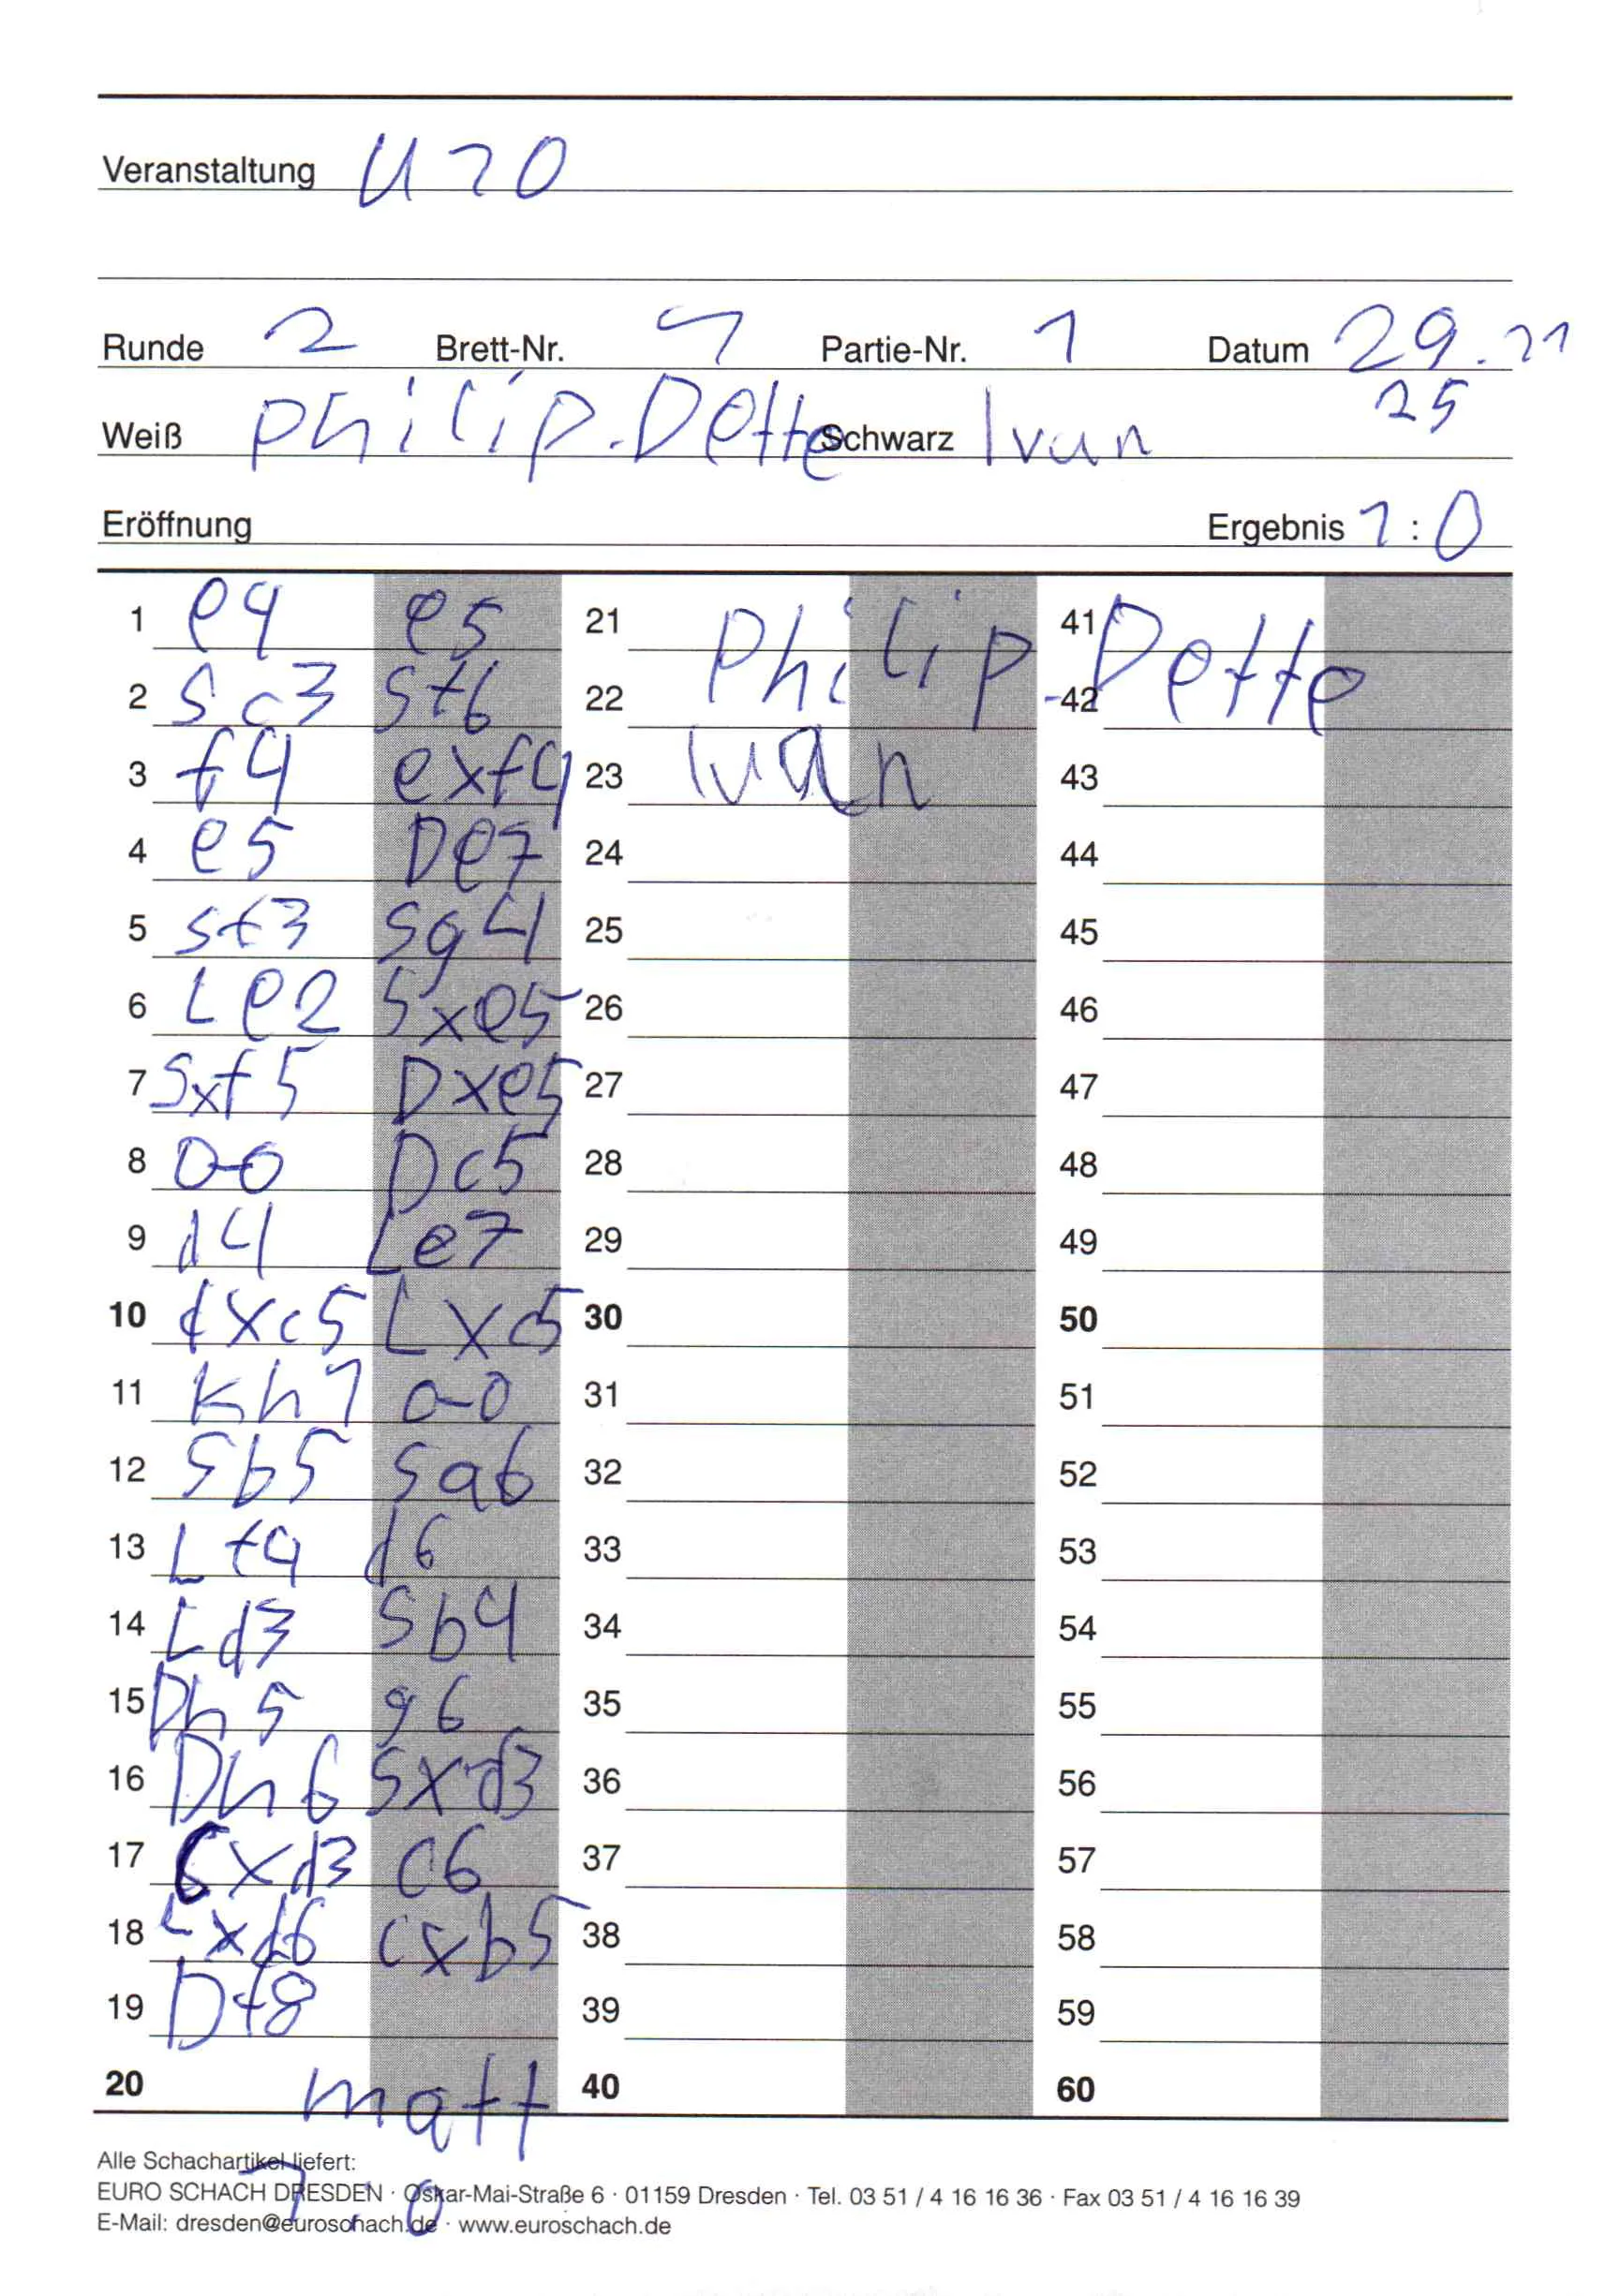 Veranstaltung U20
Runde 2 Brett-Nr. 4 Partie-Nr. 1 Datum 29.11
25
Weiß Philip.Dette Schwarz Ivan
Eröffnung Ergebnis 1:0
1 e4 e5 21 Philip 41 Dette
2 Sc3 Sf6 22 42
3 f4 exf4 23 Ivan 43
4 e5 De7 24 44
5 Sf3 Sg4 25 45
6 Le2 Sxe5 26 46
7 Sxf5 Dxe5 27 47
8 0-0 Dc5 28 48
9 d4 Le7 29 49
10 dxc5 Lxc5 30 50
11 Kh1 0-0 31 51
12 Sb5 Sa6 32 52
13 Lf4 d6 33 53
14 Ld3 Sb4 34 54
15 Dh5 g6 35 55
16 Dh6 Sxd3 36 56
17 cxd3 c6 37 57
18 Lxd6 cxb5 38 58
19 Df8 39 59
20 matt 40 60
Alle Schachartikel liefert:
1:0
EURO SCHACH DRESDEN · Oskar-Mai-Straße 6 · 01159 Dresden · Tel. 03 51 / 4 16 16 36 · Fax 03 51 / 4 16 16 39
E-Mail: dresden@euroschach.de · www.euroschach.de